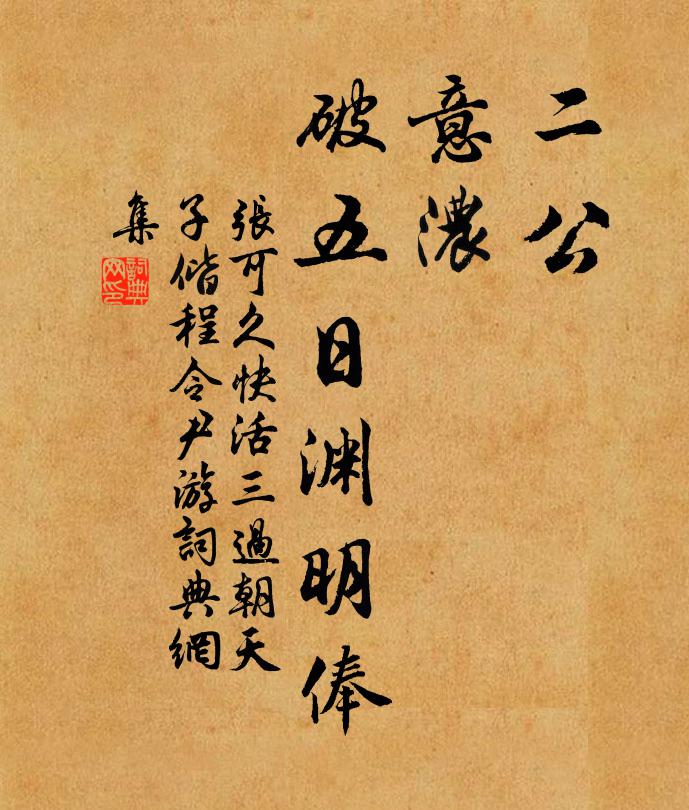 二公
意濃
破五日渊明俸
張可久快活三過朝天
子偕程令尹游詞典網
集
詞典网印